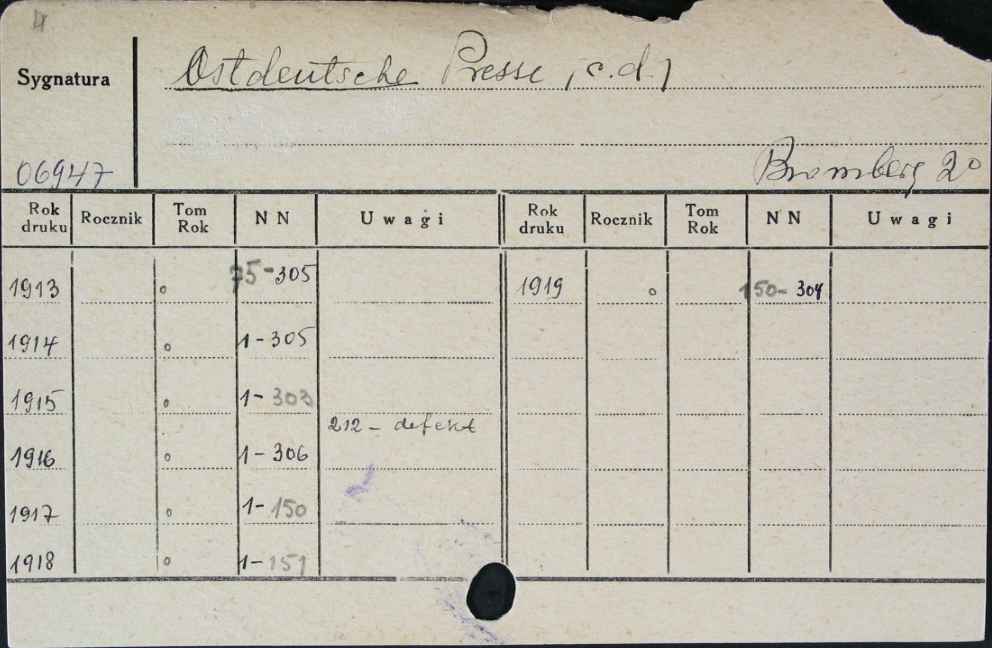 4
Sygnatura
Ostdeutsche Presse /c.d./
06947
Bromberg 20
Rok druku Rocznik Tom Rok NN Uwagi Rok druku Rocznik Tom Rok NN Uwagi
1913 o 75-305 1919 o 150-304
1914 o 1-305
1915 o 1-303
212 - defekt
1916 o 1-306
1917 o 1-150
1918 o 1-151